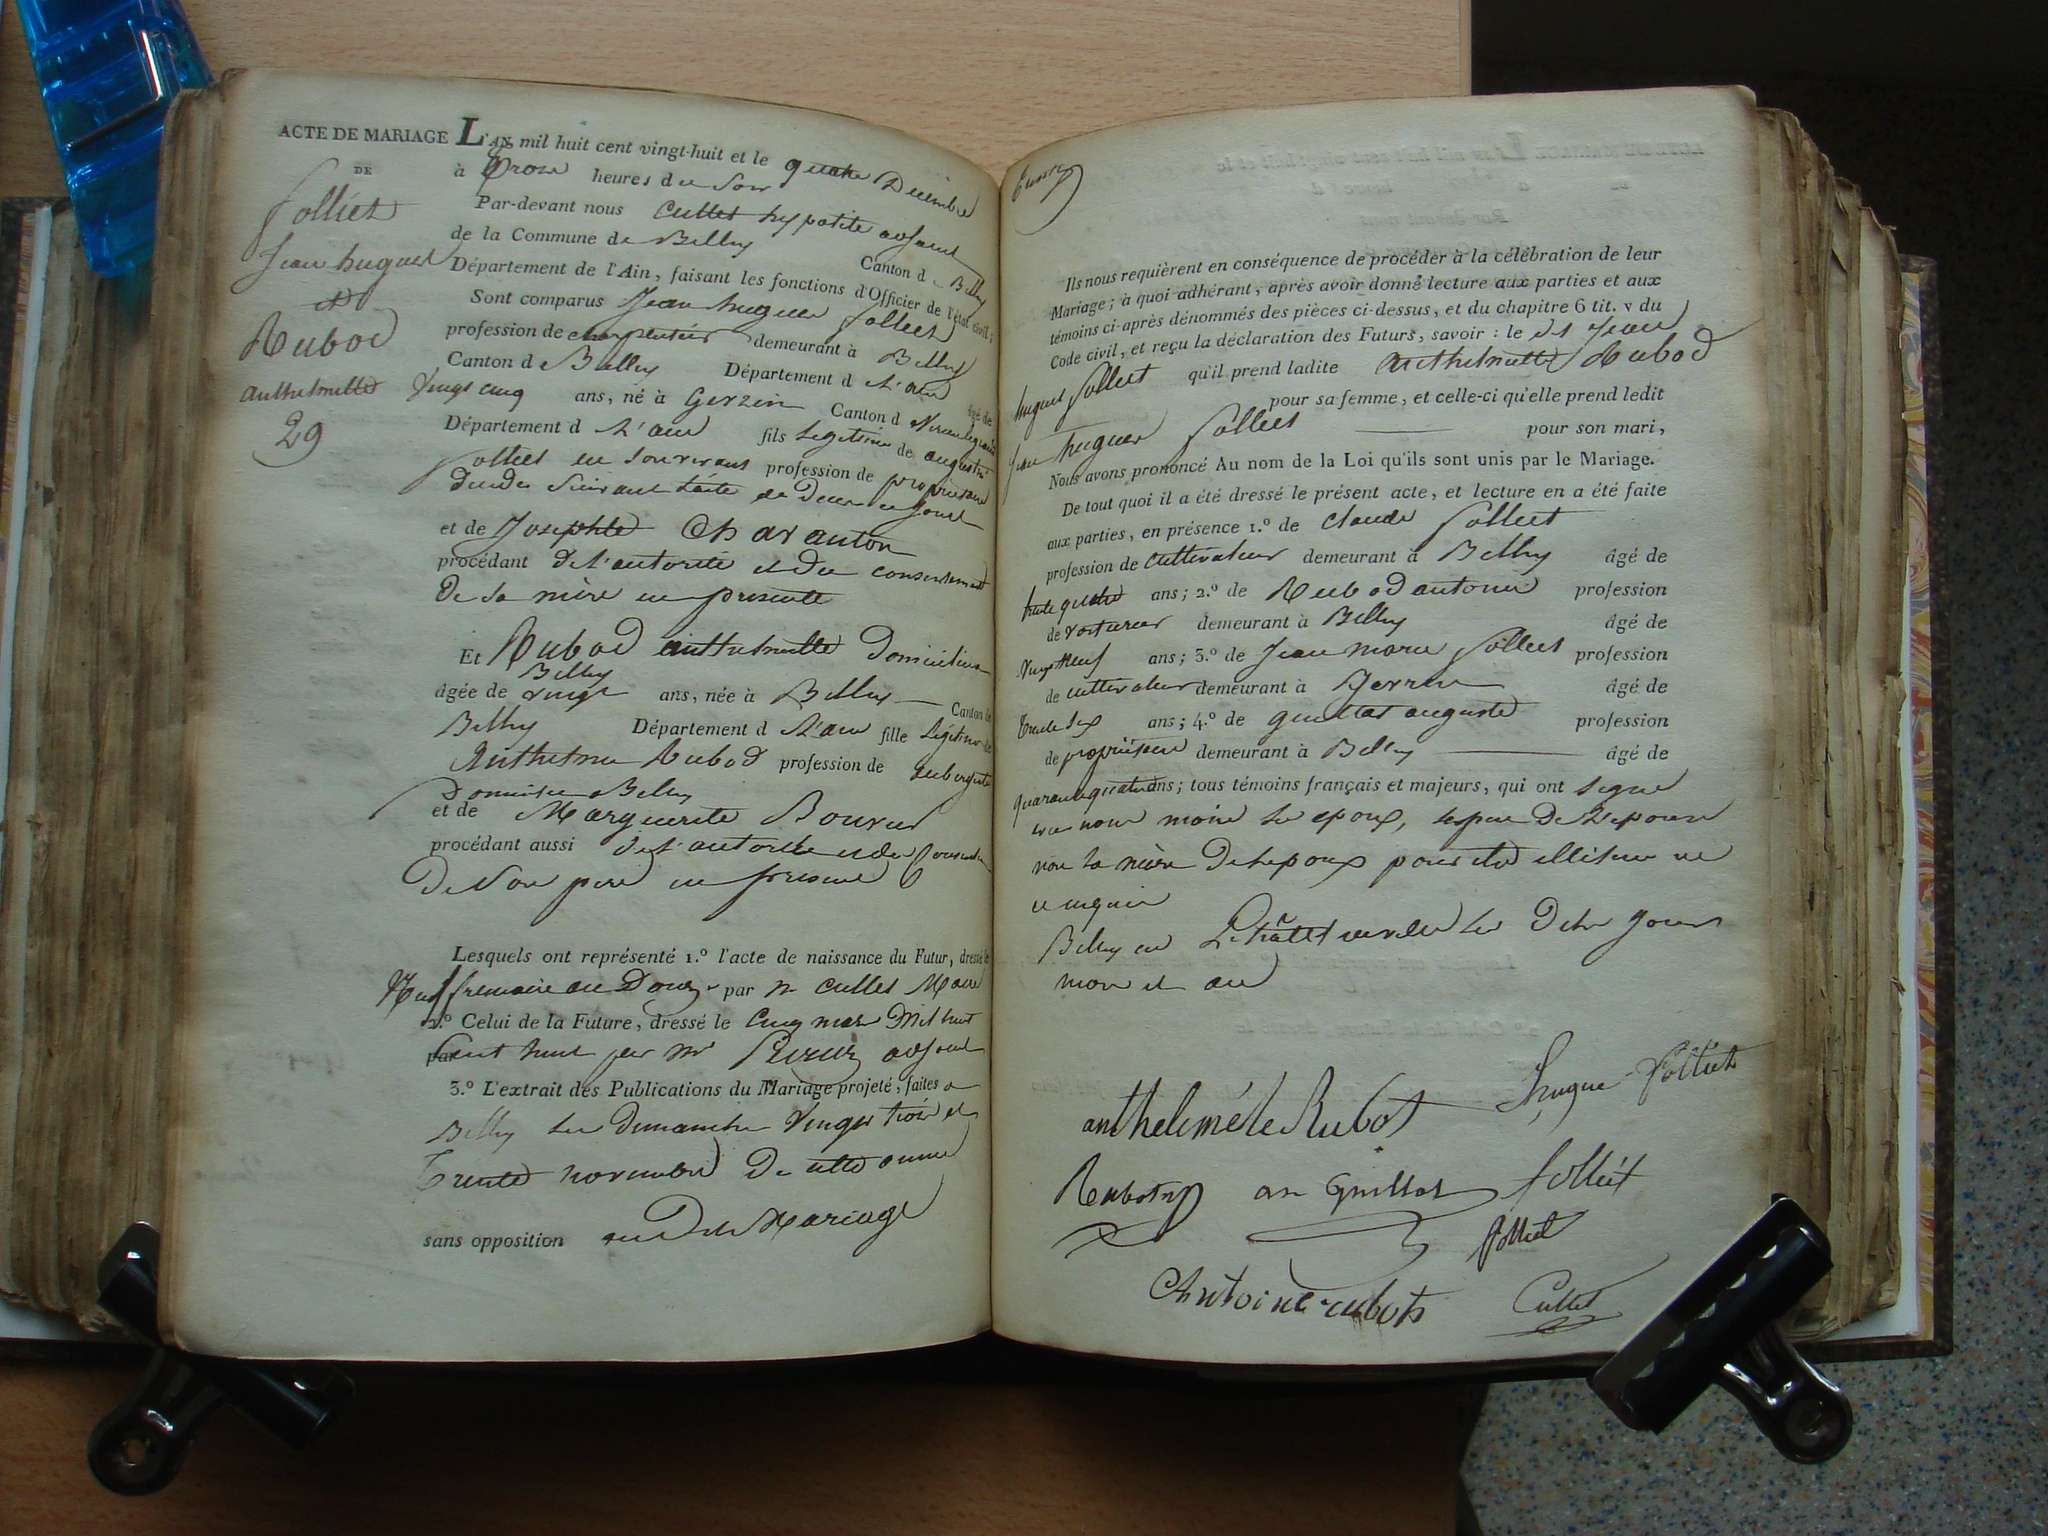 ACTE DE MARIAGE
DE
folliet
Jean hugues
et
Rubod
anthelmette
29
L'AN mil huit cent vingt-huit et le quatre Décembre
à trois heures du soir
Par-devant nous Cullet hyppolite adjoint
de la Commune de Belley Canton de Belley
Département de l'Ain, faisant les fonctions d'Officier de l'état civil;
Sont comparus Jean hugues folliet
profession de charpentier demeurant à Belley
Canton de Belley Département d L'ain âgé de
Vingt cinq ans, né à Gerzin Canton d Virieulegrand
Département d L'ain fils légitime de augustin
folliet en son vivant profession de propriétaire
et de Josephte Charanton
procédant de l'autorité et du consentement
De sa mère ici présente
Et Rubod anthelmette Domiciliée
Belley
âgée de vingt ans, née à Belley Canton de
Belley Département d L'ain fille légitime de
Anthelme Rubod profession de aubergiste
Domicilié Belley
et de Marguerite Bouvier
procédant aussi de l'autorité et du Consentement
De son père ici présent
Lesquels ont représenté 1.º l'acte de naissance du Futur, dressé le
Neuf frimaire an Douze par Mr Cullet Maire
2.º Celui de la Future, dressé le Cinq mars Mil huit
par Cent huit par Mr adjoint
3.º L'extrait des Publications du Mariage projeté, faites a
Belley les Dimanches Vingt trois et
Trente novembre De cette année
sans opposition au Dit Mariage
Ils nous requièrent en conséquence de procéder à la célébration de leur
Mariage; à quoi adhérant, après avoir donné lecture aux parties et aux
témoins ci-après dénommés des pièces ci-dessus, et du chapitre 6 tit. v du
Code civil, et reçu la déclaration des Futurs, savoir: le dt Jean
hugues folliet qu'il prend ladite anthelmette Rubod
pour sa femme, et celle-ci qu'elle prend ledit
Jean hugues folliet pour son mari,
Nous avons prononcé Au nom de la Loi qu'ils sont unis par le Mariage.
De tout quoi il a été dressé le présent acte, et lecture en a été faite
aux parties, en présence 1.º de claude folliet
profession de cultivateur demeurant à Belley âgé de
trente quatre ans; 2.º de Rubod antoine profession
de voiturier demeurant à Belley âgé de
vingt neuf ans; 3.º de Jean marie folliet profession
de cultivateur demeurant à Gerzin âgé de
trente six ans; 4.º de guillot auguste profession
de propriétaire demeurant à Belley âgé de
quarante quatre ans; tous témoins français et majeurs, qui ont signé
avec nous moins les epoux, le père De L'epouse
non la mère De l'epoux pour etre illiterée
Belley en les Dits Jour
mois et an
hugue folliet
antheleméte Rubot
Rubot an Guillot folliet
folliet
Antoine rubot Cullet